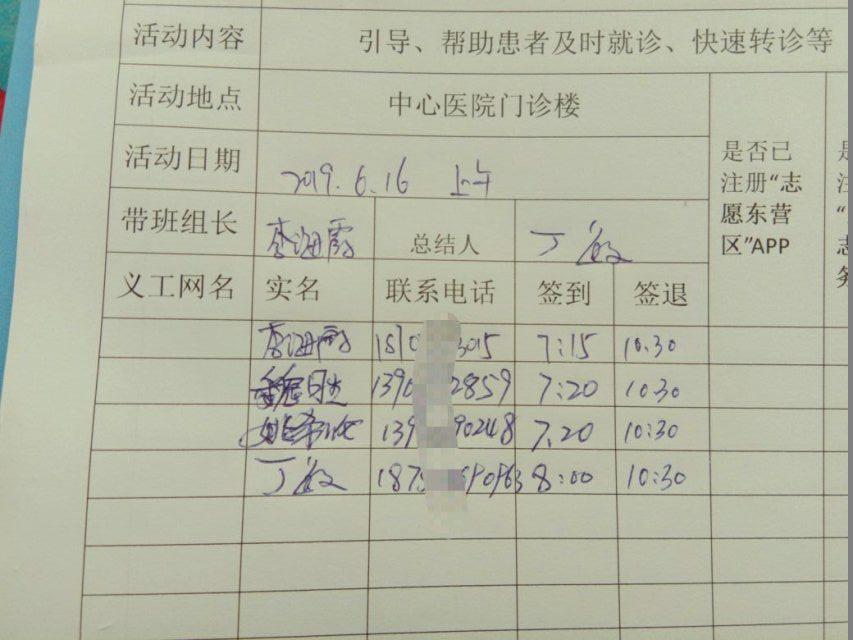 活动内容 引导、帮助患者及时就诊、快速转诊等
活动地点 中心医院门诊楼
活动日期 2019.6.16 上午
是否已
注册“志
愿东营
区”APP
带班组长 李海霞 总结人 丁
义工网名 实名 联系电话 签到 签退
李海霞 3015 7:15 10.30
2859 7:20 10:30
90248 7.20 10:30
丁 8:00 10:30